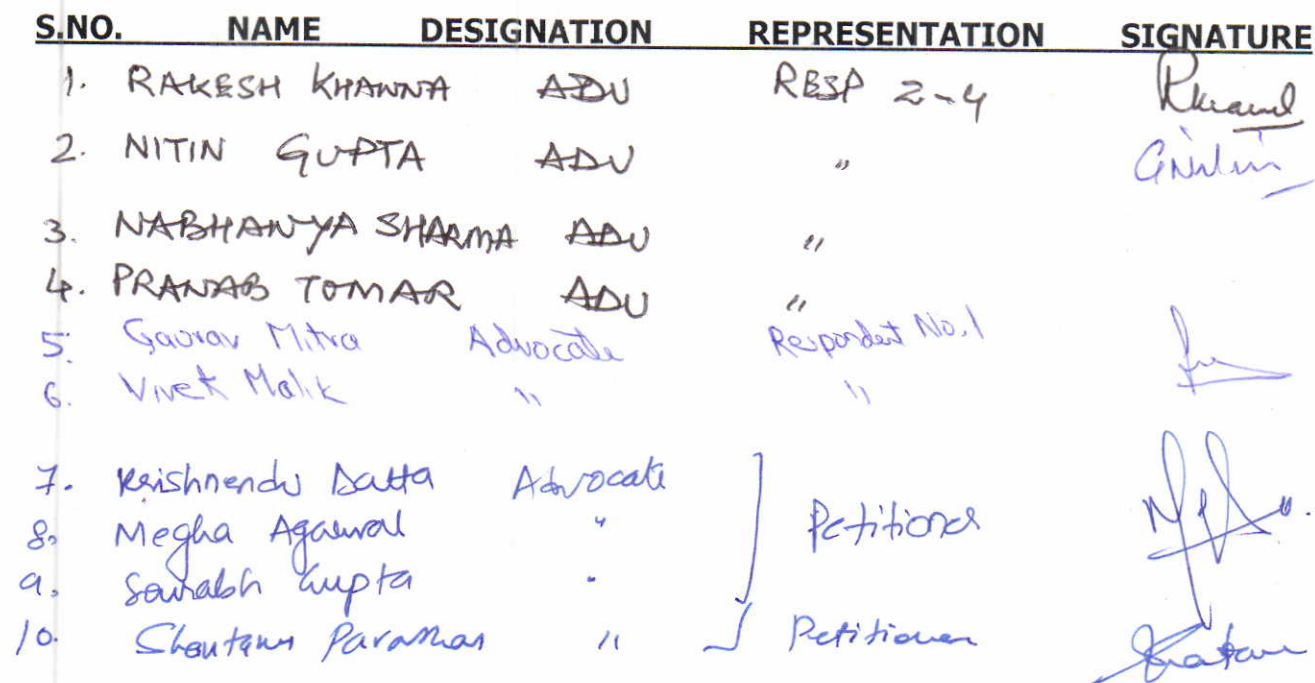 S.NO. NAME DESIGNATION REPRESENTATION SIGNATURE
1. RAKESH KHANNA ADV RESP 2-4
2. NITIN GUPTA ADV "
3. NABHANYA SHARMA ADV "
4. PRANAB TOMAR ADV "
5. Gaurav Mitra Advocate Respondent No.1
6. Vivek Malik " "
7. Krishnendu Datta Advocate
8. Megha Agarwal " Petitioner
9. Saurabh Gupta "
10. Shantanu Parashar " Petitioner